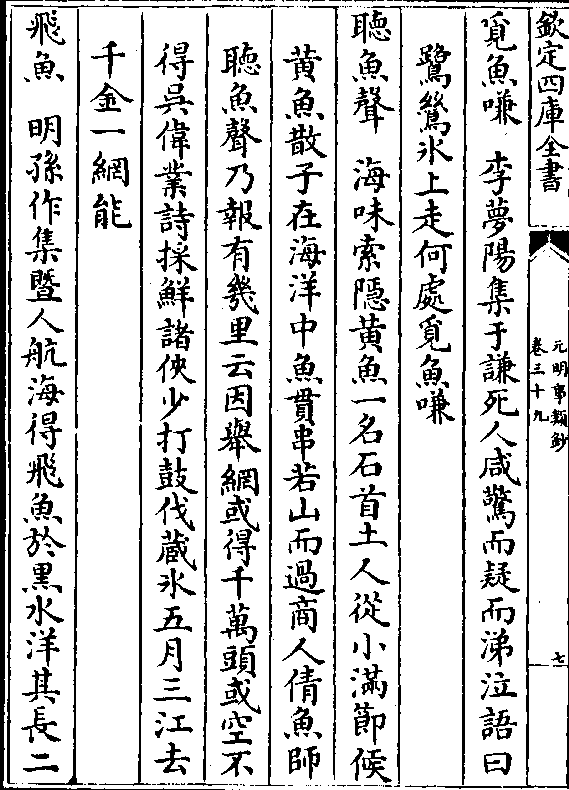 欽定四庫全書
元明事類鈔
卷三十九
七
覓魚嗛　李夢陽集于謙死人咸驚而疑而涕泣語曰
鷺鶿氷上走何處覓魚嗛
聴魚聲　海味索隠黄魚一名石首土人從小滿節候
黄魚散子在海洋中魚貫串若山而過商人倩魚師
聴魚聲乃報有幾里云因舉網或得千萬頭或空不
得吳偉業詩採鮮諸俠少打鼓伐蔵氷五月三江去
千金一網能
飛魚　明孫作集暨人航海得飛魚於黒水洋其長二